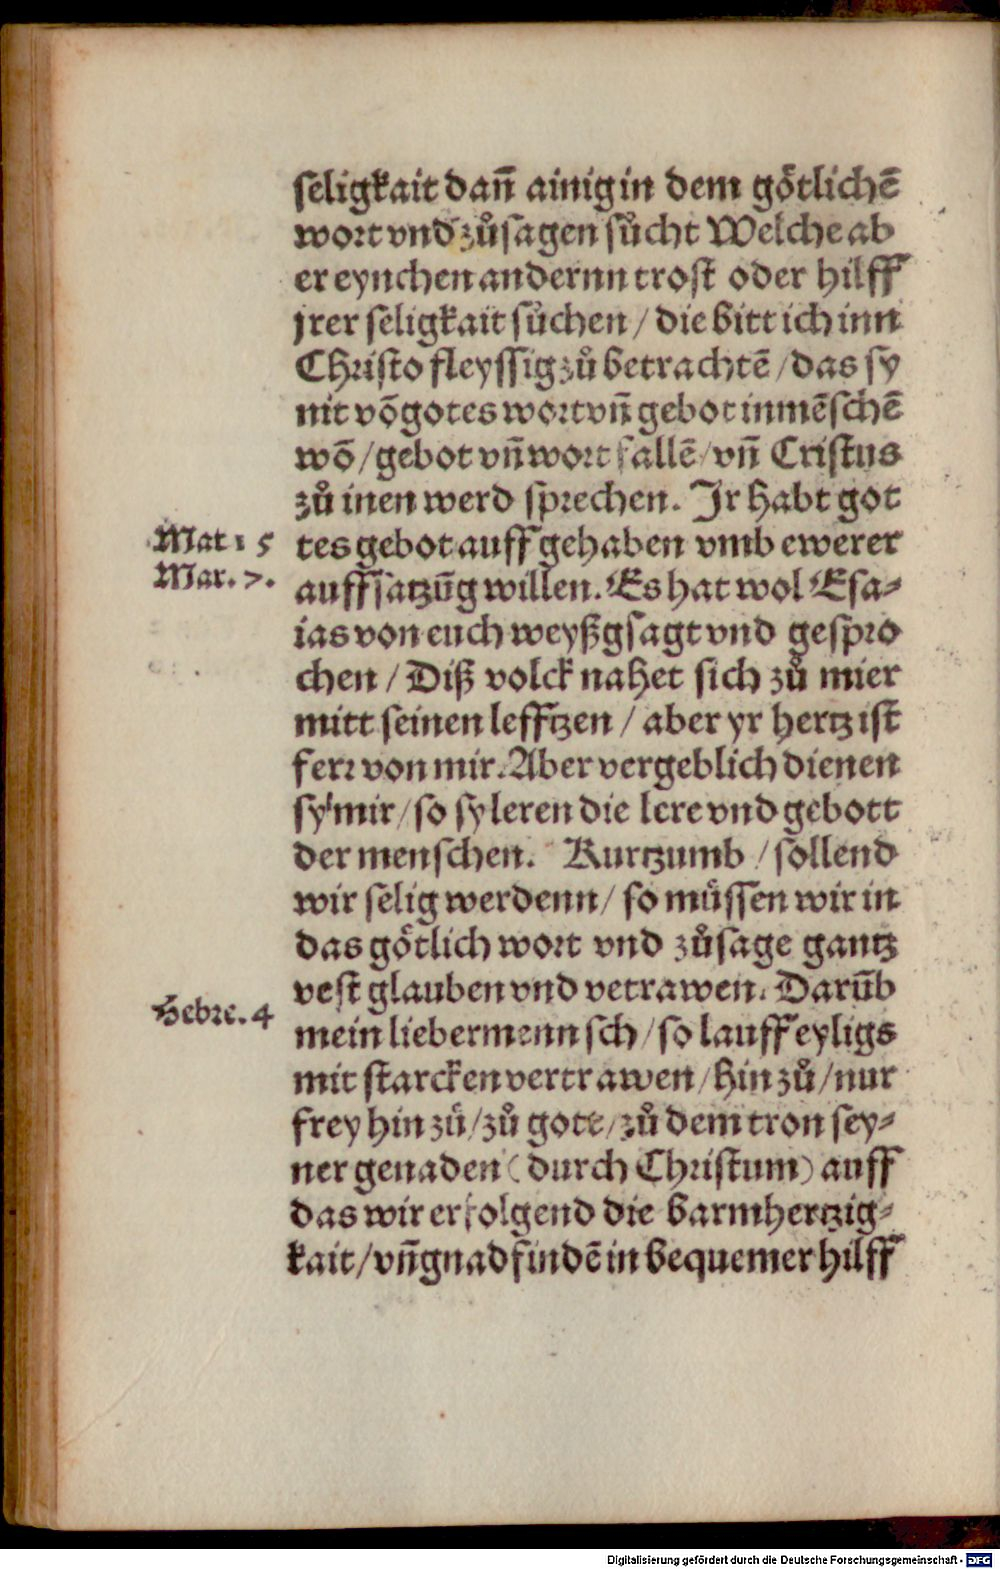 seligkait dañ ainig in dem gőtlichē
wort vnd zůsagen sůcht Welche ab
er eynchen andernn trost oder hilff
jrer seligkait sůchen / die bitt ich inn
Christo fleyssig zů betrachtē / das sy
nit võ gotes wort vñ gebot in mēschē
wō / gebot vñ wort fallē / vñ Cristus
zů inen werd sprechen. Jr habt got
Mat 15 tes gebot auff gehaben vmb ewerer
Mar. 7. auffsatzūg willen. Es hat wol Esa⸗
ias von euch weyßgsagt vnd gespro
chen / Diß volck nahet sich zů mier
mitt seinen lefftzen / aber yr hertz ist
ferr von mir. Aber vergeblich dienen
sy mir / so sy leren die lere vnd gebott
der menschen. Kurtzumb / sollend
wir selig werdenn / so müssen wir in
das götlich wort vnd zůsage gantz
vest glauben vnd vetrawen. Darūb
Hebre. 4 mein lieber mennsch / so lauff eyligs
mit starcken vertrawen / hin zů / nur
frey hin zů / zů gott / zů dem tron sey⸗
ner genaden ( durch Christum ) auff
das wir erfolgend die barmhertzig⸗
kait / vñ gnad findē in bequemer hilff
Digitalisierung gefördert durch die Deutsche Forschungsgemeinschaft - DFG